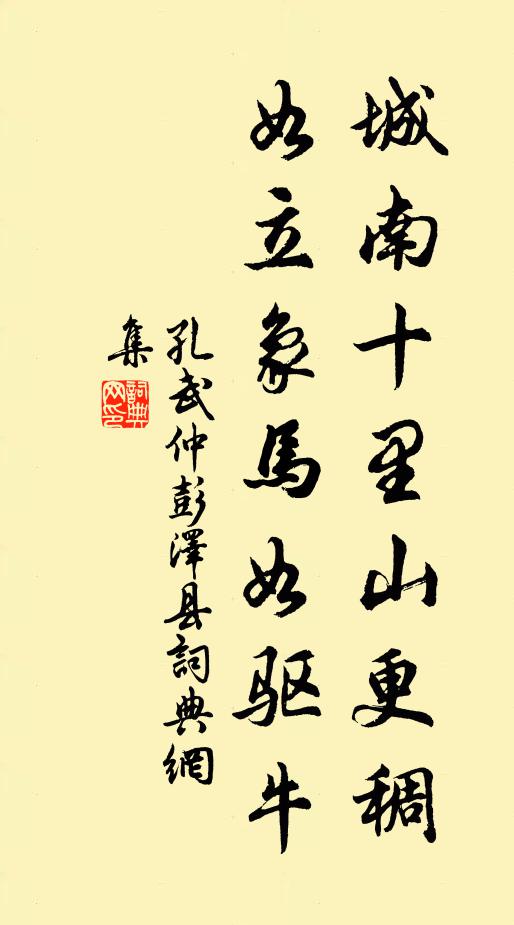 城南十里山更稠
如立象馬如驱牛
孔武仲彭澤县詞典網
集
詞典网印